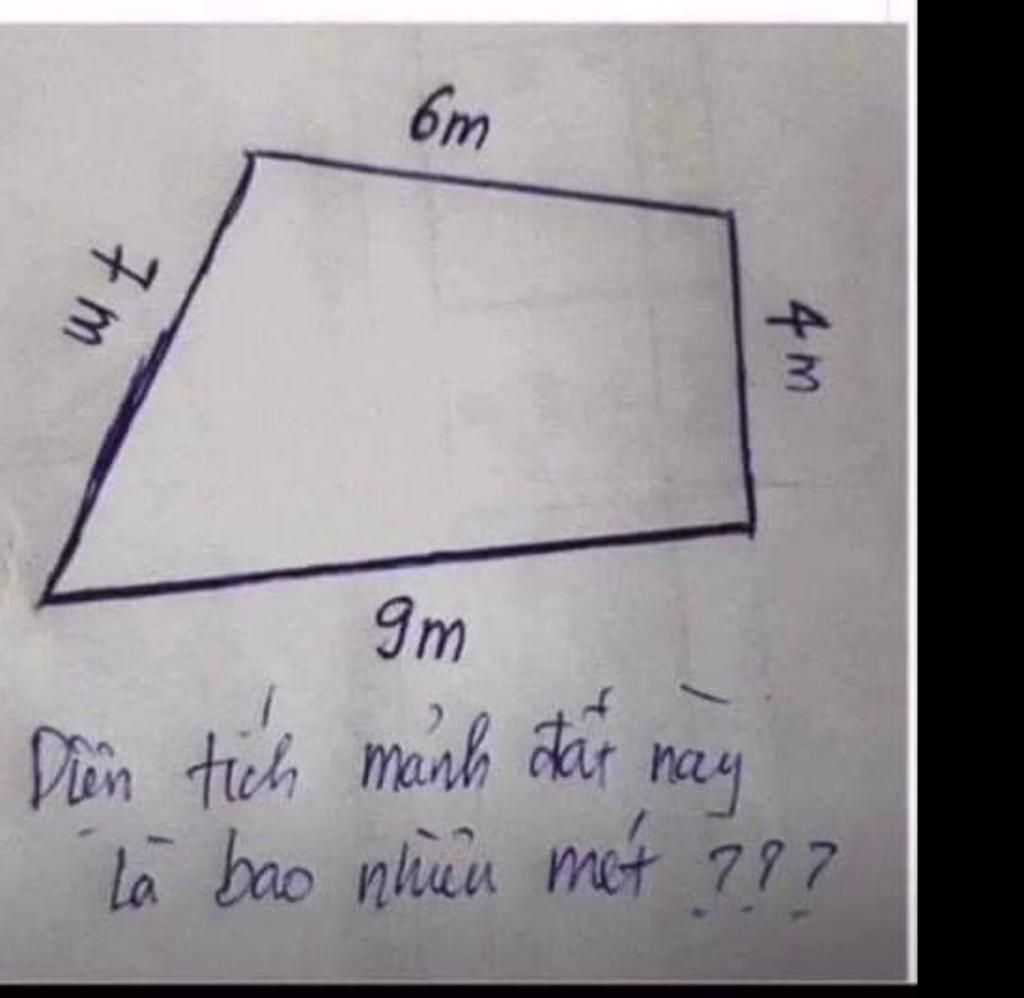 6m
7m
4m
9m
Diện tích mảnh đất này
là bao nhiêu mét ???